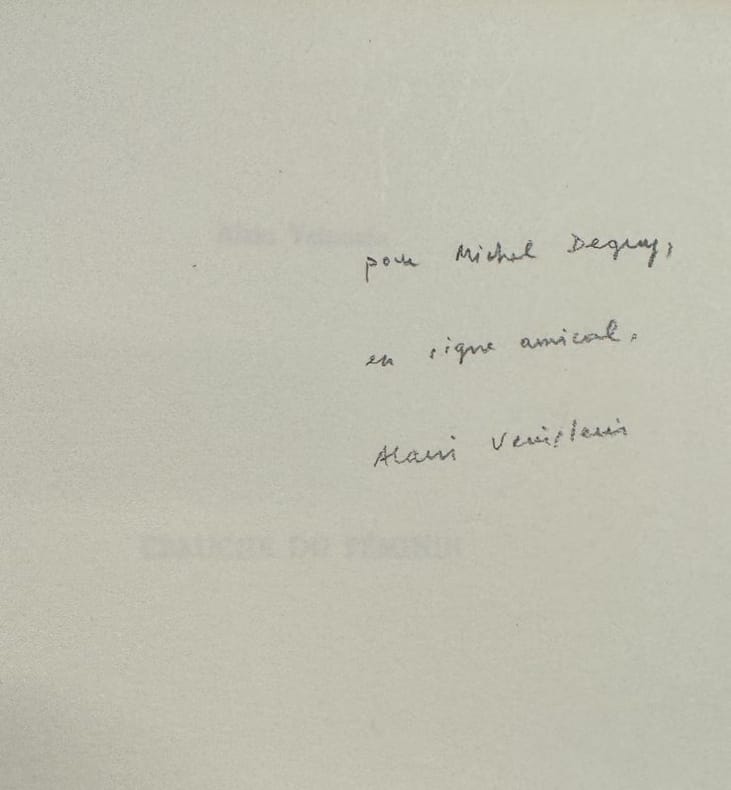 Alain Veinstein
pour Michel Deguy,
en signe amical.
Alain Veinstein
L'ÉBAUCHE DU FÉMININ